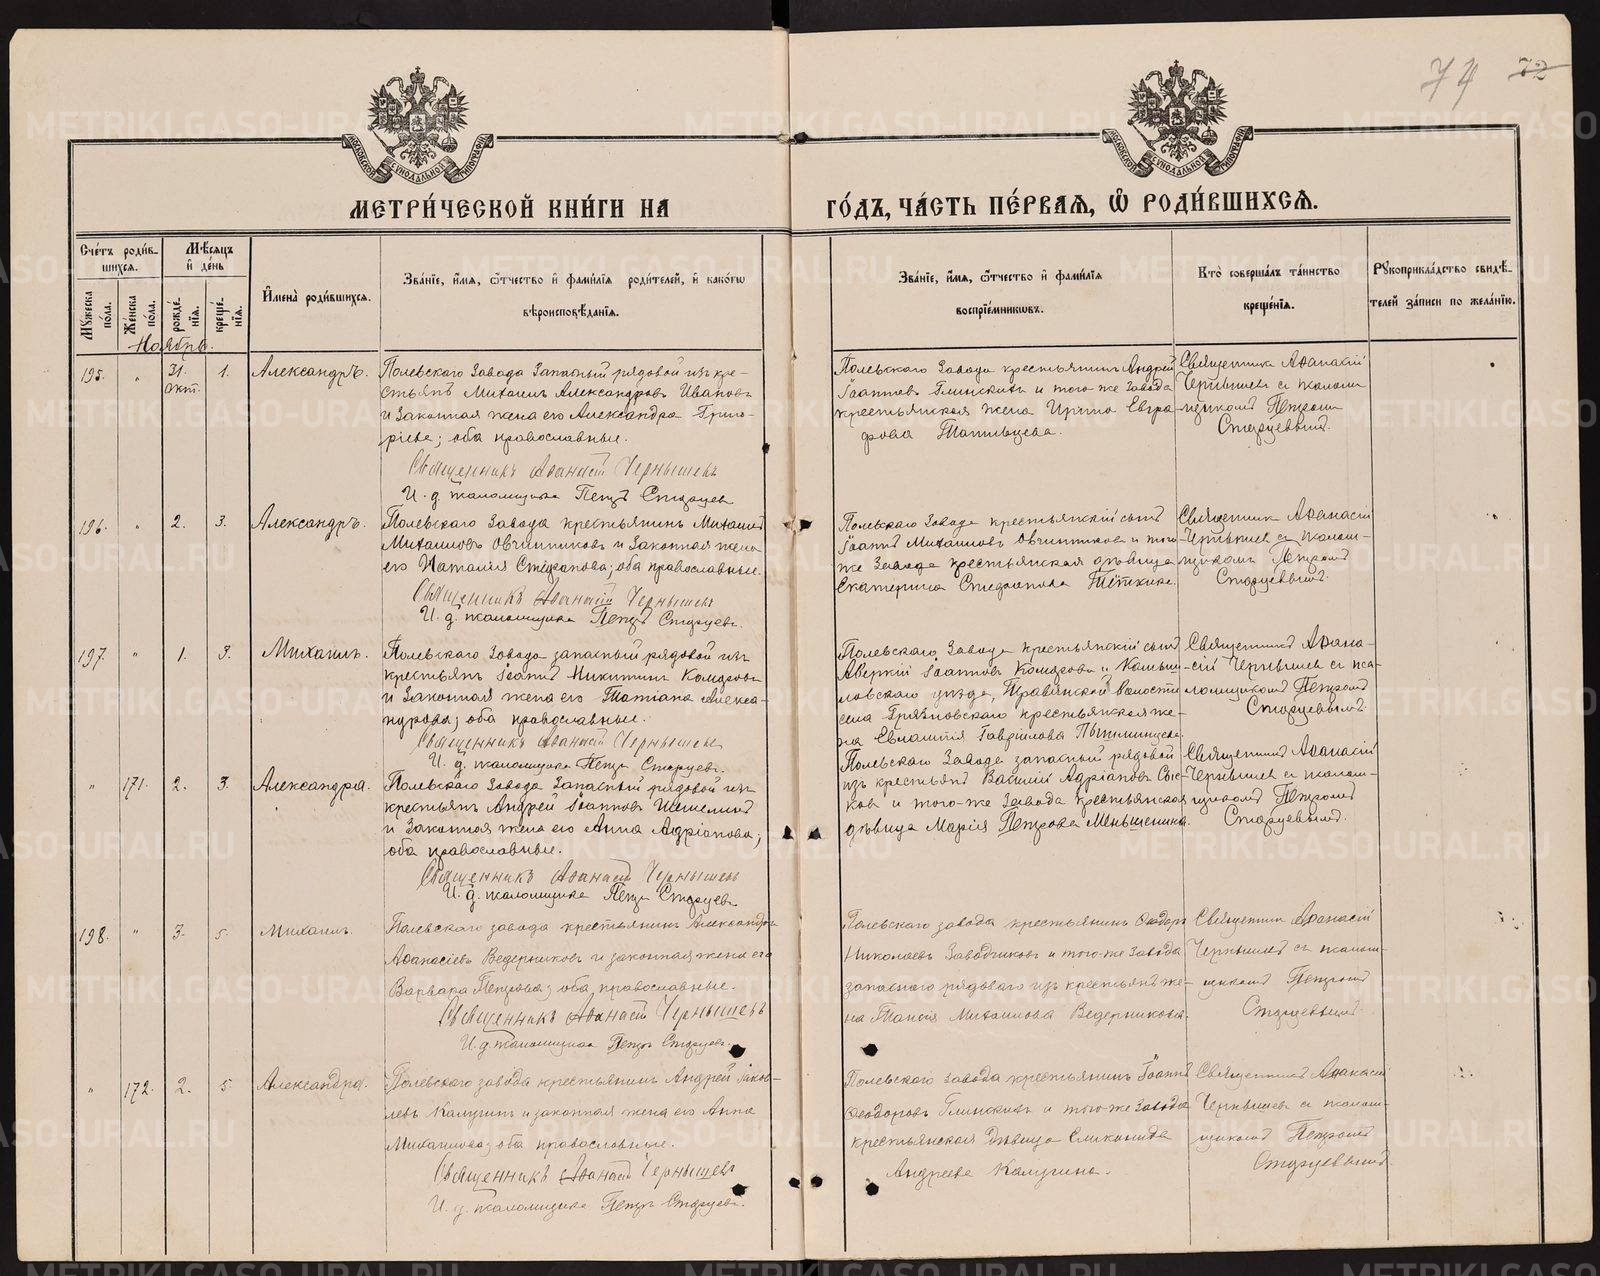 74 72
МОСКОВСКОЙ СѴНОДАЛЬНОЙ ТИПОГРАФІИ
МОСКОВСКОЙ СѴНОДАЛЬНОЙ ТИПОГРАФІИ
МЕТРИ́ЧЕСКОЙ КНИ́ГИ НА
ГО́ДЪ, ЧА́СТЬ ПЕ́РВАѦ, Ѽ РОДИ́ВШИХСѦ.
Сче́тъ роди́в-
шихся.
Мѣ́сяцъ
и҆ де́нь
Мꙋ́жеска по́ла.
Же́нска по́ла.
рожде́-нїя.
креще́-нїя.
И҆мена̀ роди́вшихся.
Зва́нїе, и҆́мя, ѻ҆́тчество и҆ фами́лїя роди́телей, и҆ како́гѡ
вѣроисповѣ́данїя.
Зва́нїе, и҆́мя, ѻ҆́тчество и҆ фами́лїя
воспрїе́мникѡвъ.
Кто̀ соверша́лъ та́инство
креще́нїя.
Рꙋкоприкла́дство свидѣ́-
телей за́писи по жела́нїю.
Ноябрь.
195. " 31. окт. 1. Александръ.
Полевскаго Завода Запасный рядовой изъ кре-
стьянъ Михаилъ Александровъ Ивановъ
и Законная жена его Александра Григо-
рьева; оба православные.
Священникъ Аѳанасій Чернышевъ
И. д. псаломщика Петръ Старцевъ
Полевскаго Завода крестьянинъ Андрей
Іоанновъ Глинскихъ и того-же Завода
крестьянская жена
Священникъ Аѳанасій
Чернышевъ съ псалом-
щикомъ Петромъ
Старцевымъ.
196. " 2. 3. Александръ.
Полевскаго Завода крестьянинъ Михаилъ
Михаиловъ Овчинниковъ и Законная жена
его Наталія Стефанова; оба православные.
Священникъ Аѳанасій Чернышевъ
И. д. псаломщика Петръ Старцевъ.
Полевскаго Завода крестьянскій сынъ
Іоаннъ Михаиловъ Овчинниковъ и того-
же Завода крестьянская дѣвица
Екатерина Стефанова
Священникъ Аѳанасій
Чернышевъ съ псалом-
щикомъ Петромъ
Старцевымъ.
197. " 1. 3. Михаилъ.
Полевскаго Завода запасный рядовой изъ
крестьянъ Іоаннъ Никитинъ Комаровъ
и Законная жена его Татіана Алекса-
ндрова; оба православные.
Священникъ Аѳанасій Чернышевъ
И. д. псаломщика Петръ Старцевъ.
Полевскаго Завода крестьянскій сынъ
Аверкій Іоанновъ Комаровъ и Камыш-
ловскаго уѣзда, Травянской волости
села Грязновскаго крестьянская же-
на Евлампія Гаврилова
Священникъ Аѳана-
сій Чернышевъ съ пса-
ломщикомъ Петромъ
Старцевымъ.
" 171. 2. 3. Александра.
Полевскаго Завода Запасный рядовой изъ
крестьянъ Андрей Іоанновъ
и Законная жена его Анна Адріанова;
оба православные.
Священникъ Аѳанасій Чернышевъ
И. д. псаломщика Петръ Старцевъ
Полевскаго Завода запасный рядовой
изъ крестьянъ Василій Адріановъ
и того-же Завода крестьянская
дѣвица Марія Петрова Меньшенина.
Священникъ Аѳанасій
Чернышевъ съ псалом-
щикомъ Петромъ
Старцевымъ.
198. " 3. 5. Михаилъ.
Полевскаго завода крестьянинъ Александръ
Аѳанасіевъ Ведерниковъ и законная жена его
Варвара Петрова; оба православные.
Священникъ Аѳанасій Чернышевъ
И. д. псаломщика Петръ Старцевъ.
Полевскаго завода крестьянинъ Ѳеодоръ
Николаевъ Заводчиковъ и того-же Завода
запаснаго рядоваго изъ крестьянъ же-
на Таисія Михаилова Ведерникова.
Священникъ Аѳанасій
Чернышевъ съ псалом-
щикомъ Петромъ
Старцевымъ.
" 172. 2. 5 Александра.
Полевскаго завода крестьянинъ Андрей Іаков-
левъ Калугинъ и законная жена его Анна
Михаилова; оба православные.
Священникъ Аѳанасій Чернышевъ
И. д. псаломщика Петръ Старцевъ.
Полевскаго завода крестьянинъ Іоаннъ
Ѳеодоровъ Глинскихъ и того-же Завода
крестьянская дѣвица
Андреева Калугина.
Священникъ Аѳанасій
Чернышевъ съ псалом-
щикомъ Петромъ
Старцевымъ.
METRIKI.GASO-URAL.RU